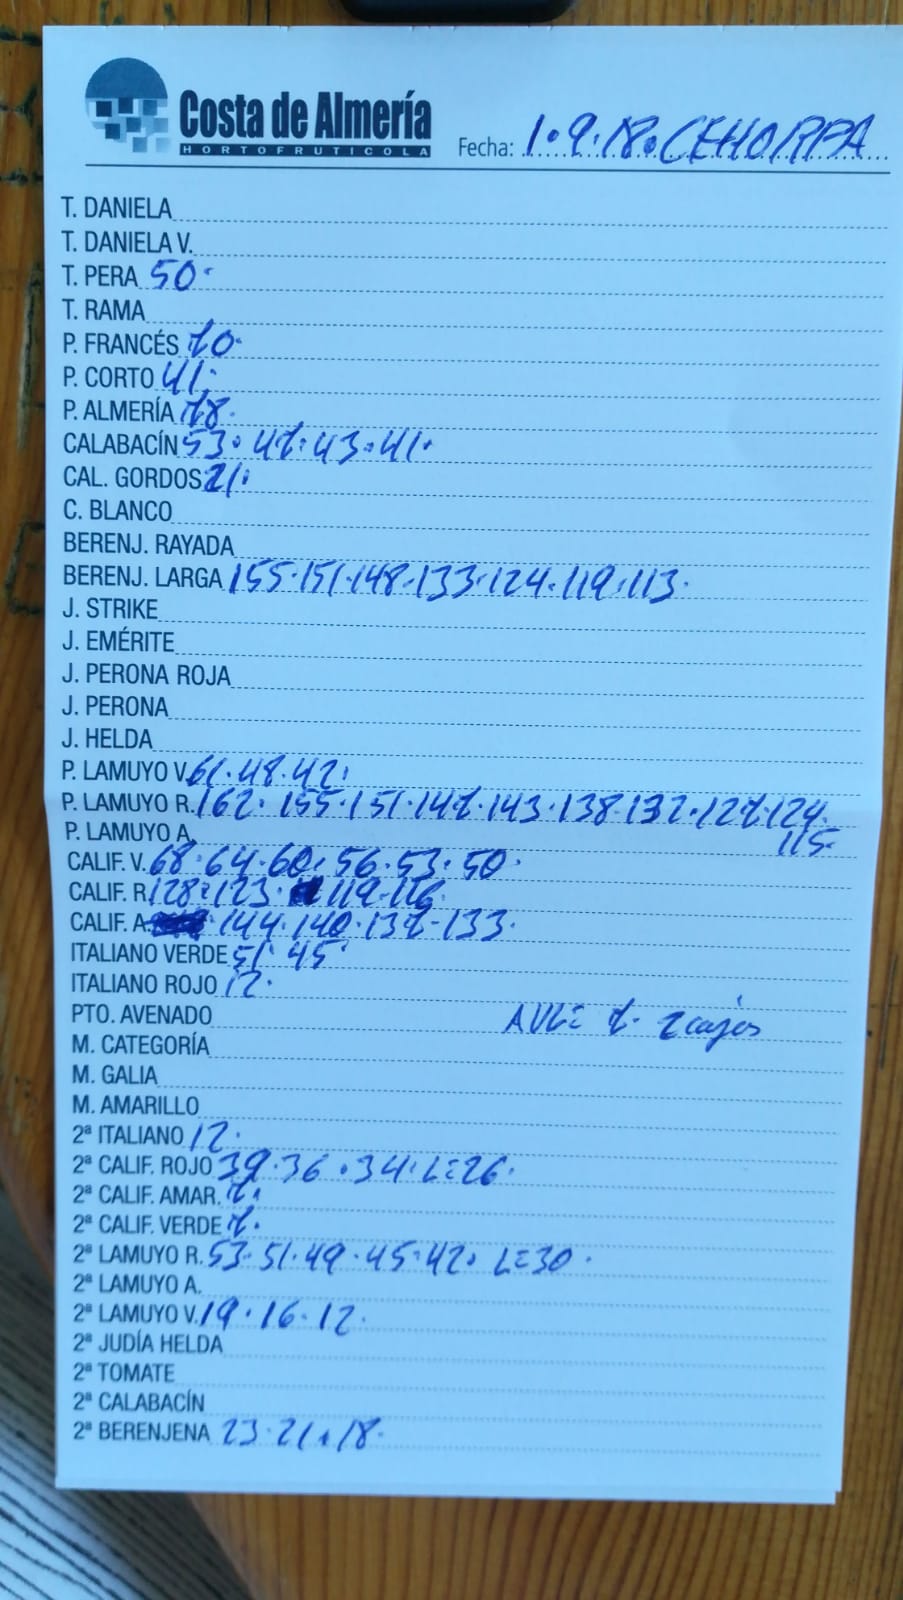 Costa de Almería
HORTOFRUTICOLA
Fecha: 1.9.18. CEHORPA
T. DANIELA
T. DANIELA V.
T. PERA 50.
T. RAMA
P. FRANCÉS 70.
P. CORTO 41.
P. ALMERÍA 78.
CALABACÍN 53. 47. 43. 41.
CAL. GORDOS 21.
C. BLANCO
BERENJ. RAYADA
BERENJ. LARGA 155.151.148.133.124.119.113.
J. STRIKE
J. EMÉRITE
J. PERONA ROJA
J. PERONA
J. HELDA
P. LAMUYO V. 61.48.42.
P. LAMUYO R. 162. 155.151.147.143.138.132.127.124.
115.
P. LAMUYO A.
CALIF. V. 68.64.60.56.53.50.
CALIF. R. 128.123. 119-116
CALIF. A. 144.140.137-133.
ITALIANO VERDE 51. 45.
ITALIANO ROJO 12.
PTO. AVENADO
7. 2 cajas
M. CATEGORÍA
M. GALIA
M. AMARILLO
2ª ITALIANO 12.
2ª CALIF. ROJO 39.36.34. L=26.
2ª CALIF. AMAR. 7.
2ª CALIF. VERDE 7.
2ª LAMUYO R. 53.51.49.45.42. L=30.
2ª LAMUYO A.
2ª LAMUYO V. 19.16.12.
2ª JUDÍA HELDA
2ª TOMATE
2ª CALABACÍN
2ª BERENJENA 23.21.18.